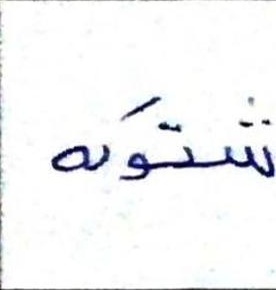 شتوَىه